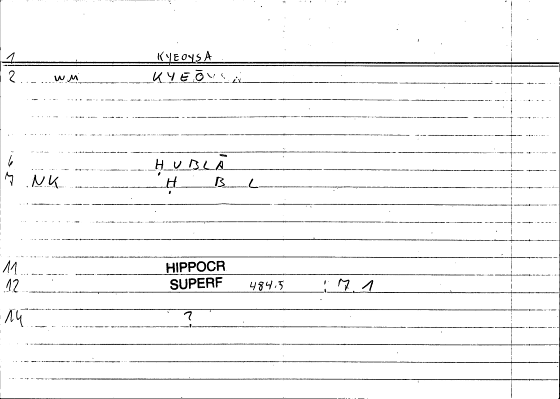 1 KYEOYSA
2 WM KYEŌYSA
6 ḤUBLĀ
7 NK Ḥ B L
11 HIPPOCR
12 SUPERF 484.5 : 7.1
14 ?